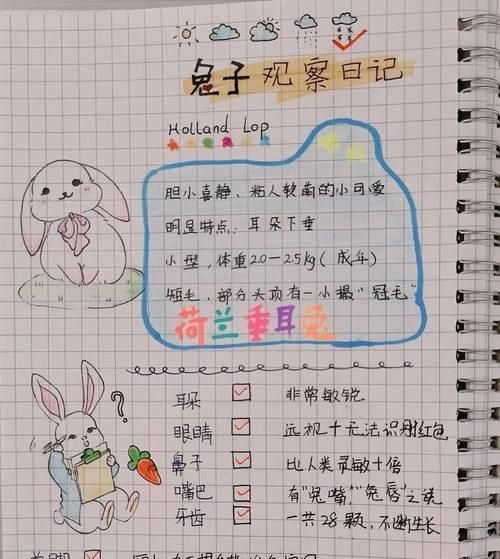 兔子观察日记
Holland Lop
胆小喜静、粘人软萌的小可爱
明显特点：耳朵下垂
小型，体重2.0-2.5kg(成年)
短毛，部分头顶有一小撮“冠毛”
荷兰垂耳兔
?
耳朵 非常敏锐
眼睛 远视+无法识别红色
鼻子 比人类灵敏十倍
嘴巴 有“兔嘴”“兔唇”之说
牙齿 一共28颗，不断生长